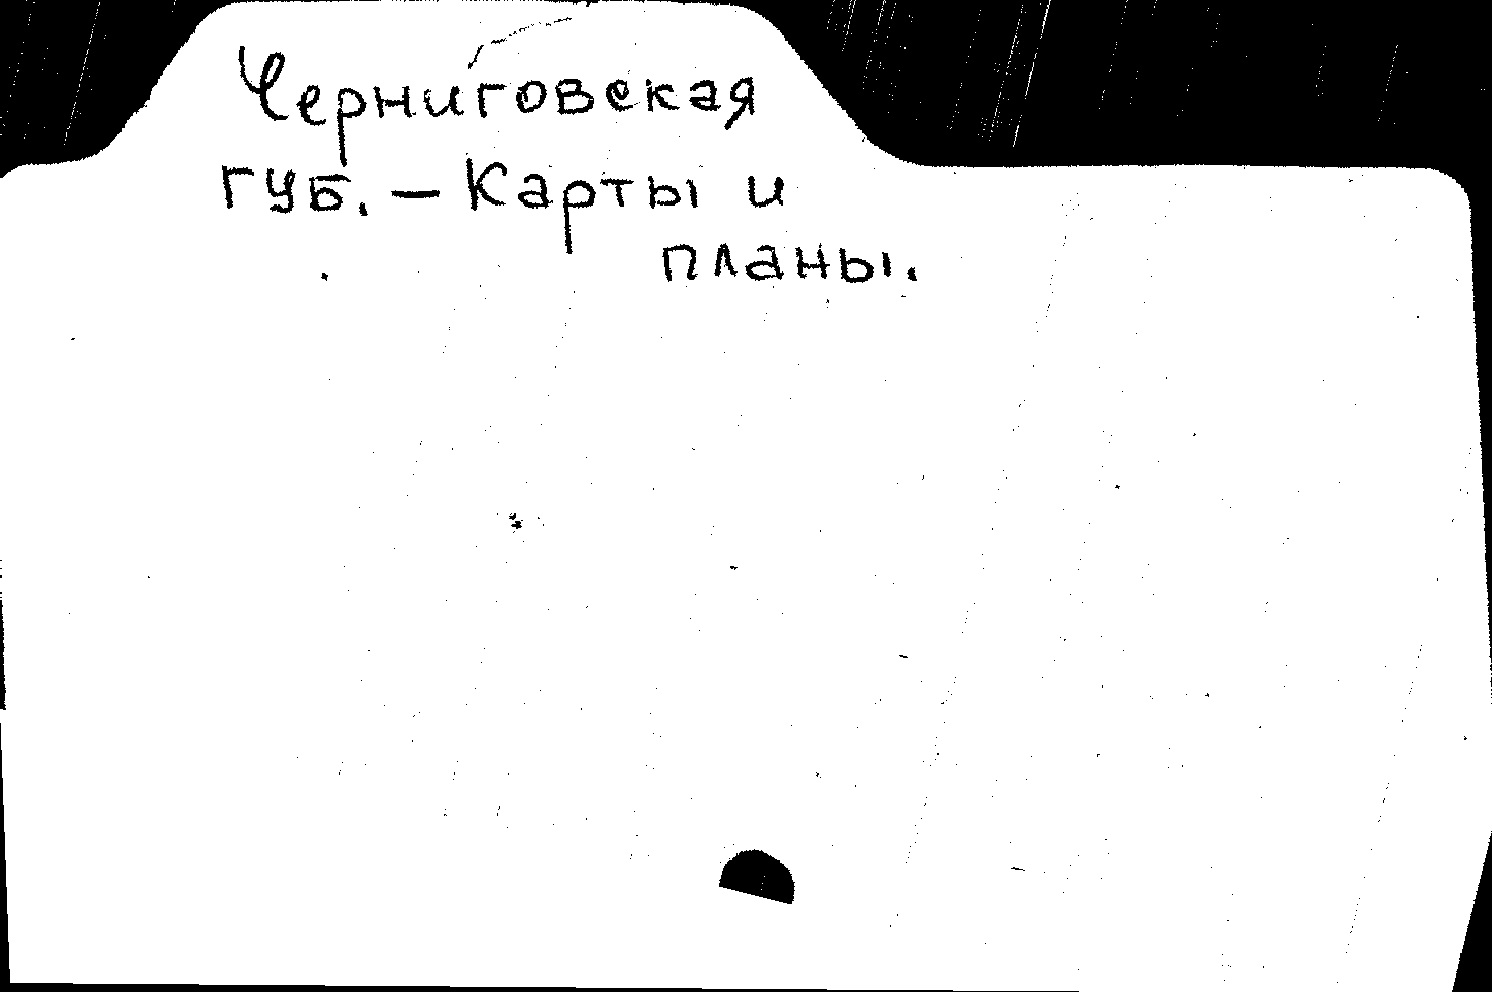 Черниговская
губ. – Карты и
планы.